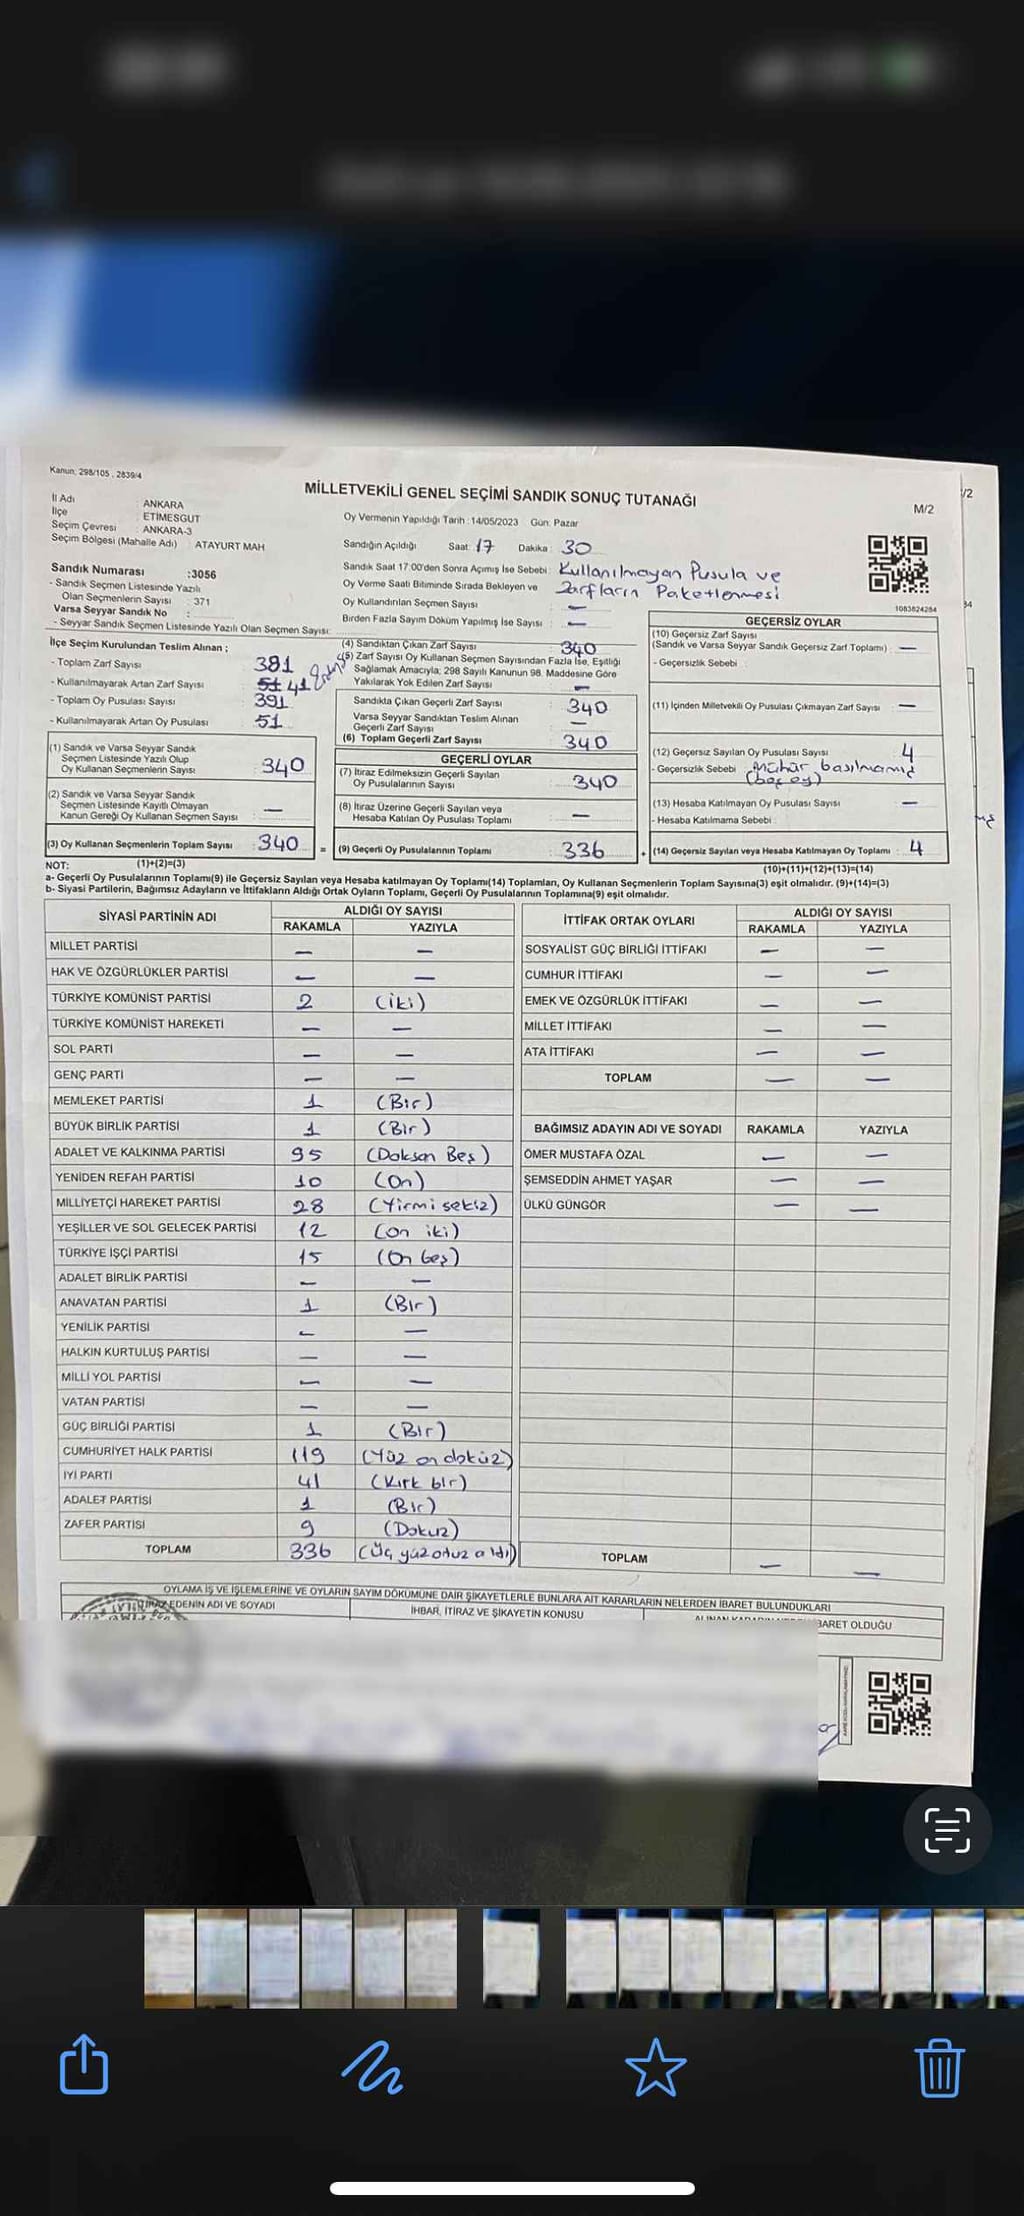 Kanun; 298/105 , 2839/4
MİLLETVEKİLİ GENEL SEÇİMİ SANDIK SONUÇ TUTANAĞI
/2
M/2
İl Adı : ANKARA
İlçe : ETİMESGUT
Seçim Çevresi : ANKARA-3
Seçim Bölgesi (Mahalle Adı) : ATAYURT MAH
Oy Vermenin Yapıldığı Tarih : 14/05/2023 Gün: Pazar
Sandığın Açıldığı Saat: 17 Dakika : 30
Sandık Saat 17:00'den Sonra Açımış İse Sebebi : Kullanılmayan Pusula ve
Oy Verme Saati Bitiminde Sırada Bekleyen ve Zarfların Paketlenmesi
Oy Kullandırılan Seçmen Sayısı : —
Birden Fazla Sayım Döküm Yapılmış İse Sayısı : —
1083624284
34
Sandık Numarası :3056
- Sandık Seçmen Listesinde Yazılı
Olan Seçmenlerin Sayısı : 371
Varsa Seyyar Sandık No :
- Seyyar Sandık Seçmen Listesinde Yazılı Olan Seçmen Sayısı:
İlçe Seçim Kurulundan Teslim Alınan ;
- Toplam Zarf Sayısı 381
- Kullanılmayarak Artan Zarf Sayısı 51 41
- Toplam Oy Pusulası Sayısı 391
- Kullanılmayarak Artan Oy Pusulası 51
(1) Sandık ve Varsa Seyyar Sandık
Seçmen Listesinde Yazılı Olup
Oy Kullanan Seçmenlerin Sayısı : 340
(2) Sandık ve Varsa Seyyar Sandık
Seçmen Listesinde Kayıtlı Olmayan
Kanun Gereği Oy Kullanan Seçmen Sayısı : —
(3) Oy Kullanan Seçmenlerin Toplam Sayısı : 340 =
(4) Sandıktan Çıkan Zarf Sayısı : 340
(5) Zarf Sayısı Oy Kullanan Seçmen Sayısından Fazla İse, Eşitliği
Sağlamak Amacıyla; 298 Sayılı Kanunun 98. Maddesine Göre
Yakılarak Yok Edilen Zarf Sayısı : —
Sandıkta Çıkan Geçerli Zarf Sayısı : 340
Varsa Seyyar Sandıktan Teslim Alınan
Geçerli Zarf Sayısı : —
(6) Toplam Geçerli Zarf Sayısı : 340
GEÇERLİ OYLAR
(7) İtiraz Edilmeksizin Geçerli Sayılan
Oy Pusulalarının Sayısı : 340
(8) İtiraz Üzerine Geçerli Sayılan veya
Hesaba Katılan Oy Pusulası Toplamı : —
(9) Geçerli Oy Pusulalarının Toplamı : 336 +
GEÇERSİZ OYLAR
(10) Geçersiz Zarf Sayısı
(Sandık ve Varsa Seyyar Sandık Geçersiz Zarf Toplamı) : —
- Geçersizlik Sebebi :
(11) İçinden Milletvekili Oy Pusulası Çıkmayan Zarf Sayısı : —
(12) Geçersiz Sayılan Oy Pusulası Sayısı : 4
- Geçersizlik Sebebi : Mühür basılmamış
(boş oy)
(13) Hesaba Katılmayan Oy Pusulası Sayısı : —
- Hesaba Katılmama Sebebi :
(14) Geçersiz Sayılan veya Hesaba Katılmayan Oy Toplamı : 4
NOT: (1)+(2)=(3) (10)+(11)+(12)+(13)=(14)
a- Geçerli Oy Pusulalarının Toplamı(9) ile Geçersiz Sayılan veya Hesaba katılmayan Oy Toplamı(14) Toplamları, Oy Kullanan Seçmenlerin Toplam Sayısına(3) eşit olmalıdır. (9)+(14)=(3)
b- Siyasi Partilerin, Bağımsız Adayların ve İttifakların Aldığı Ortak Oyların Toplamı, Geçerli Oy Pusulalarının Toplamına(9) eşit olmalıdır.
SİYASİ PARTİNİN ADI ALDIĞI OY SAYISI
RAKAMLA YAZIYLA
MİLLET PARTİSİ — —
HAK VE ÖZGÜRLÜKLER PARTİSİ — —
TÜRKİYE KOMÜNİST PARTİSİ 2 (iki)
TÜRKİYE KOMÜNİST HAREKETİ — —
SOL PARTİ — —
GENÇ PARTİ — —
MEMLEKET PARTİSİ 1 (Bir)
BÜYÜK BİRLİK PARTİSİ 1 (Bir)
ADALET VE KALKINMA PARTİSİ 95 (Doksan Beş)
YENİDEN REFAH PARTİSİ 10 (On)
MİLLİYETÇİ HAREKET PARTİSİ 28 (Yirmi sekiz)
YEŞİLLER VE SOL GELECEK PARTİSİ 12 (on iki)
TÜRKİYE İŞÇİ PARTİSİ 15 (On beş)
ADALET BİRLİK PARTİSİ — —
ANAVATAN PARTİSİ 1 (Bir)
YENİLİK PARTİSİ — —
HALKIN KURTULUŞ PARTİSİ — —
MİLLİ YOL PARTİSİ — —
VATAN PARTİSİ — —
GÜÇ BİRLİĞİ PARTİSİ 1 (Bir)
CUMHURİYET HALK PARTİSİ 119 (Yüz on dokuz)
İYİ PARTİ 41 (Kırk bir)
ADALET PARTİSİ 1 (Bir)
ZAFER PARTİSİ 9 (Dokuz)
TOPLAM 336 (Üç yüz otuz altı)
İTTİFAK ORTAK OYLARI ALDIĞI OY SAYISI
RAKAMLA YAZIYLA
SOSYALİST GÜÇ BİRLİĞİ İTTİFAKI — —
CUMHUR İTTİFAKI — —
EMEK VE ÖZGÜRLÜK İTTİFAKI — —
MİLLET İTTİFAKI — —
ATA İTTİFAKI — —
TOPLAM — —
BAĞIMSIZ ADAYIN ADI VE SOYADI RAKAMLA YAZIYLA
ÖMER MUSTAFA ÖZAL — —
ŞEMSEDDİN AHMET YAŞAR — —
ÜLKÜ GÜNGÖR — —
TOPLAM — —
OYLAMA İŞ VE İŞLEMLERİNE VE OYLARIN SAYIM DÖKÜMÜNE DAİR ŞİKAYETLERLE BUNLARA AİT KARARLARIN NELERDEN İBARET BULUNDUKLARI
EDENİN ADI VE SOYADI İHBAR, İTİRAZ VE ŞİKAYETİN KONUSU BARET OLDUĞU